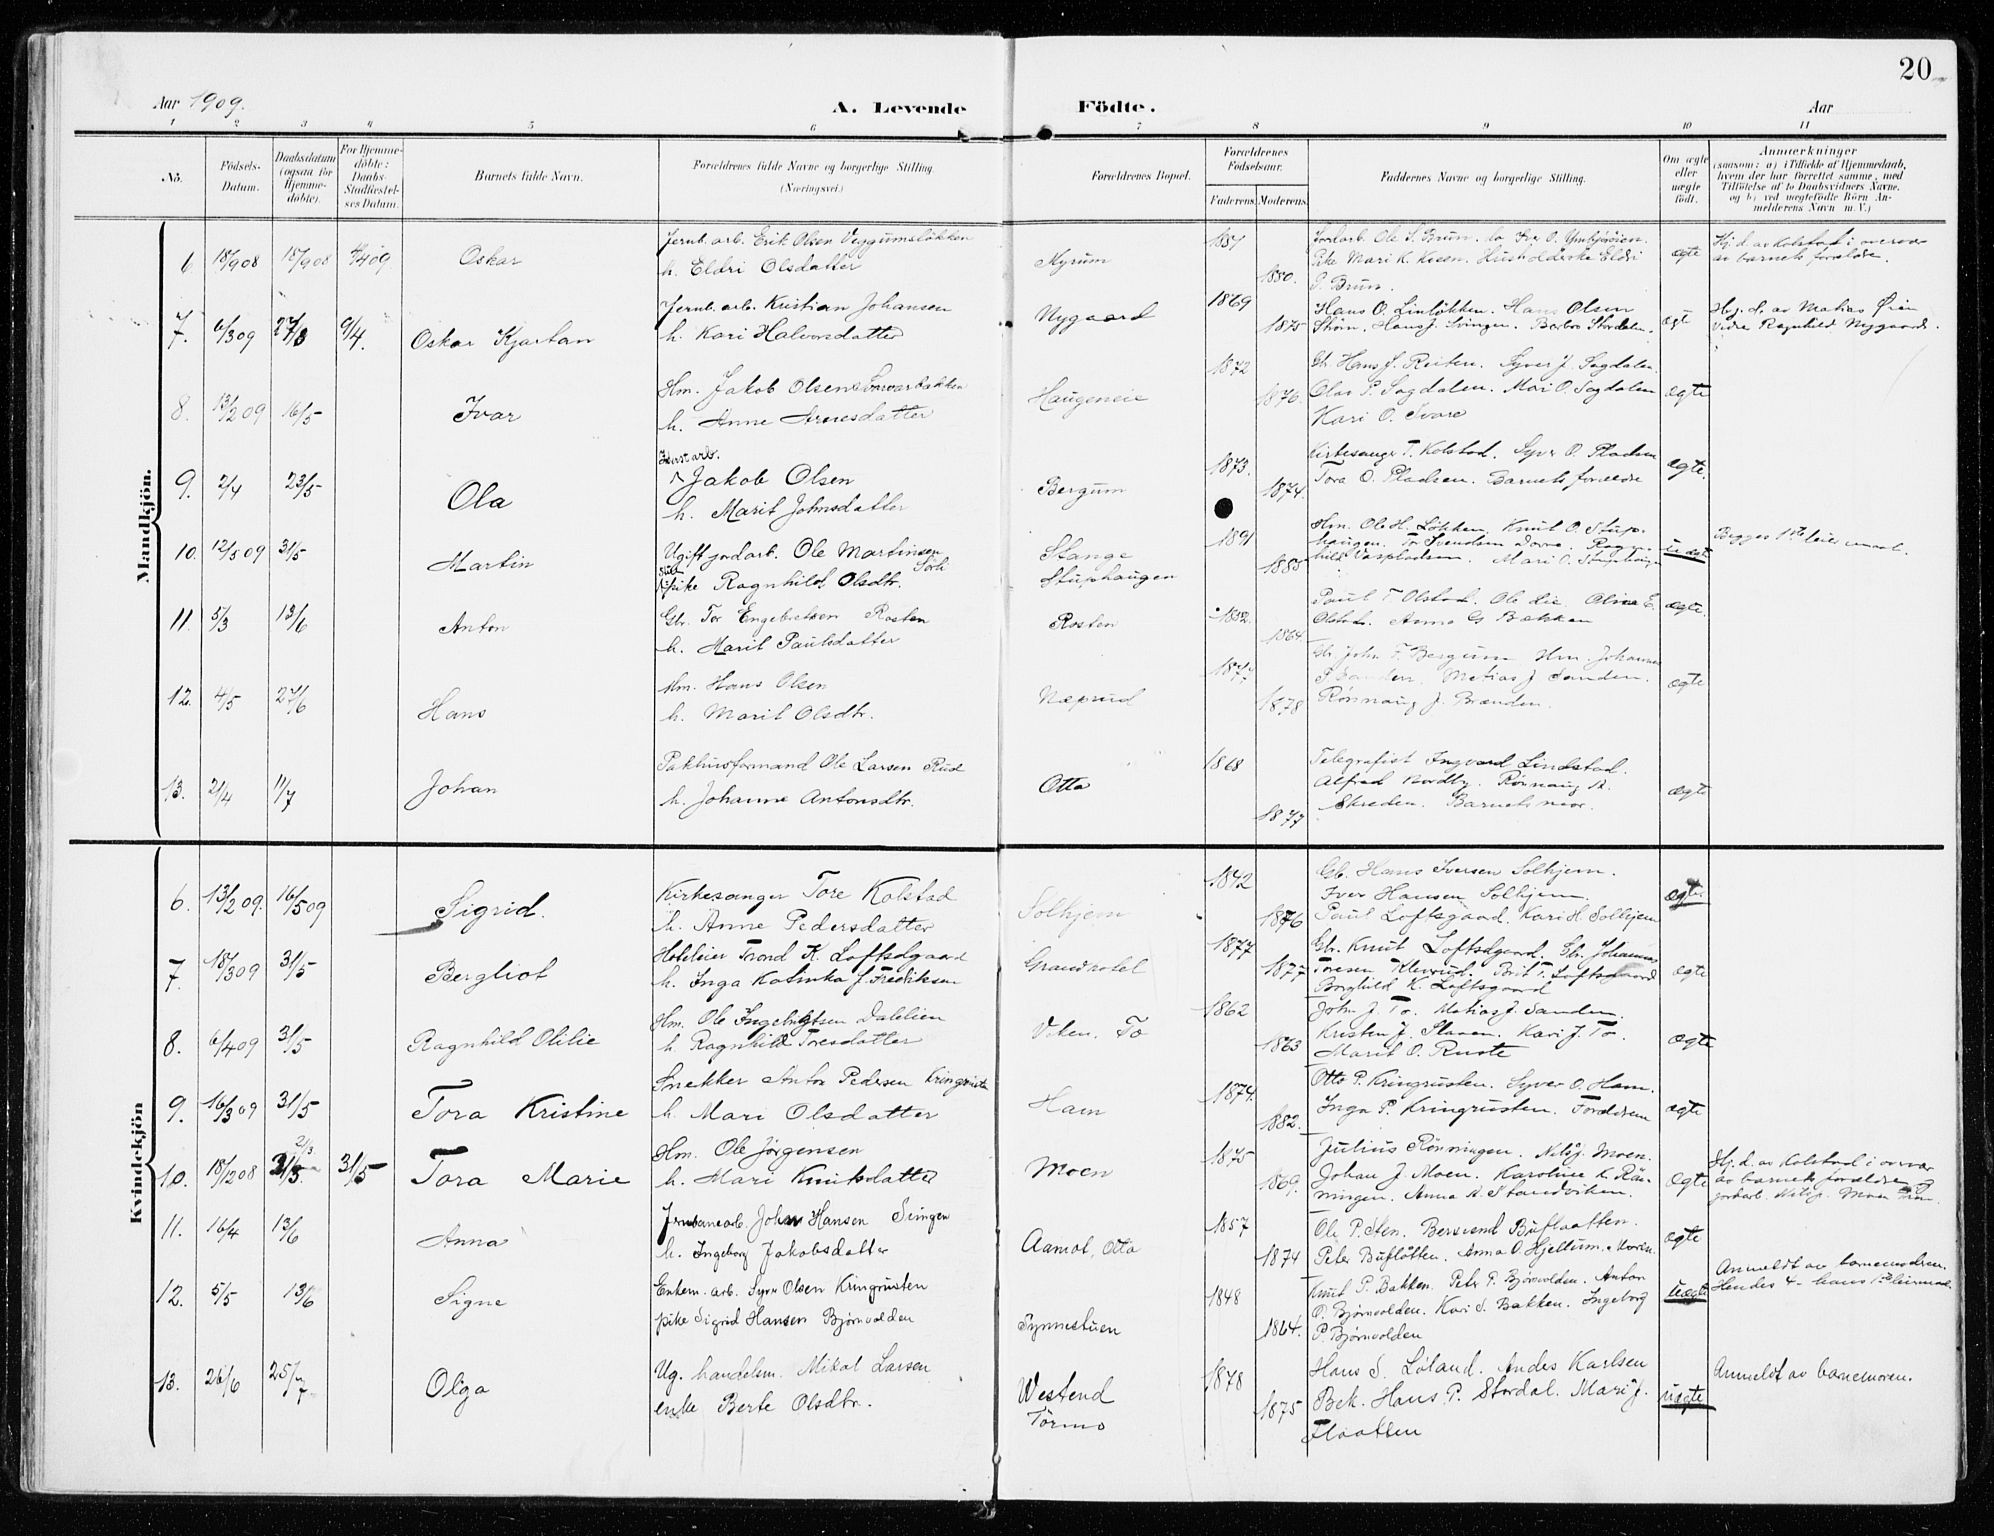 20
Aar 1909.
A. Levende Födte.
Aar
1 2 3 4 5 6 7 8 9 10 11
No.
Födsels-Datum.
Daabsdatum (ogsaa for Hjemme-döbte).
For Hjemme-döbte: Daabs-Stadfæstel-ses Datum.
Barnets fulde Navn.
Forældrenes fulde Navne og borgerlige Stilling. (Næringsvei.)
Forældrenes Bopæl.
Forældrenes Födselsaar.
Faderens. Moderens.
Faddernes Navne og borgerlige Stilling.
Om ægte eller uægte födt.
Anmærkninger
(saasom: a) i Tilfælde af Hjemmedaab,
hvem der har forrettet samme, med
Tilföielse af to Daabsvidners Navne.
og b) ved uægtefödte Börn An-
melderens Navn m. V.)
Mandkjön.
6. 18/9 08 18/9 08 4/4 09 Oskar
Jernb. arb. Erik Olsen Veggumsløkken
h. Eldri Olsdatter
Myrum
1880.
Pike Mari K. Kleen. Husholderske Eldri
P. Brun.
ægte
Hj. d. av Kolstad i overvær
av barnets forældre.
7. 6/3 09 27/3 9/4. Oskar Kjartan
Jernb. arb. Kristian Johansen
h. Kari Halvorsdatter
Nygaard
1869
1875
Hans O. Linløkken. Hans Olsen
Hans J. Svingen. Barbro Stordalen.
ægt
Hj. d. av Matias Øien
Vidne Ragnhild Nygaard.
8. 13/2 09 16/5 Ivar
Hm. Jakob Olsen
h. Anne Arnesdatter
Haugeneie
1872
1876.
Gb. Hans J. Reiten. Syver J. Sagdalen.
Olav P. Sagdalen. Mari O. Sagdalen
Kari O. Svare
ægte
9. 2/4 23/5 Ola
Jakob Olsen
h. Marit Johnsdatter
Bergum
1873.
1874.
Kirkesanger T. Kolstad. Syver O. Pladsen
Tora O. Pladsen. Barnets forældre
ægte.
10. 12/5 09 31/5 Martin
Ugift jordarb. Ole Martinsen
pike Ragnhild Olsdtr.
Stange
Stuphaugen
1891
1885
Hm. Ole H. Løkken. Knut O. Stup-
haugen.
Mari O. Stuphaugen
uægt
Begges 1ste leiermaal.
11. 5/3 13/6 Anton
Gbr. Tor Engebretsen Rosten
h. Marit Paulsdatter
Rosten
1864
Paul T. Olstad. Ole Lie. Oline E.
Olstad. Anne G. Bakken
ægte.
12. 4/5 27/6 Hans
Hm. Hans Olsen
h. Marit Olsdtr.
Næprud
1878
Gb. John F. Bergum Hm. Johannes
P. Sanden. Matias J. Sanden.
Rønnaug J. Brænden.
ægte
13. 2/4 11/7 Johan
Pakhusformand Ole Larsen Rud
h. Johanne Antonsdtr.
Otta
1868
1877
Telegrafist Ingvard Lindstad.
Alfred Nordby. Rønnaug
Skreden. Barnets mor.
ægte
Kvindekjön
6. 13/2 09. 16/5 09 Sigrid.
Kirkesanger Tore Kolstad
h. Anne Pedersdatter
Solhjem
1872
1876
Gb. Hans Iversen Solhjem.
Iver Hansen Solhjem.
Paul Loftsgaard. Kari H. Solhjem
ægte
7. 18/3 09 31/5 Bergliot
Hoteleier Trond K. Loftsgaard
h. Inga Katinka J. Fredriksen
Grandhotel
1877
1877
Gb. Knut Loftsgaard. Gb. Johannes
Toresen Kleivrud. Brit T. Loftsgaard
Borghild K. Loftsgaard
ægte
8. 6/4 09 31/5 Ragnhild Otilie
Hm. Ole Ingebrigtsen Dalelien
h. Ragnhild Toresdatter
To
1862
1863
John J. To. Matias J. Sanden.
Kristen J. Slaaen. Kari J. To.
Marit O. Ruste
ægte
9. 16/3 09 31/5 Tora Kristine
Snekker Anton Pedersen Kringrusten
h. Mari Olsdatter
Ham
1874.
1882.
Otto P. Kringrusten. Syver O. Ham.
Inga P. Kringrusten. Forældrene
ægte
10. 18/12 08 21/3. 31/5 Tora Marie
Hm. Ole Jørgensen
h. Mari Knutsdatter
Moen
1875
1869.
Julius Rønningen. Nils J. Moen.
Johan J. Moen. Karoline K. Røn-
ningen. Anna N. Strandviken.
ægte
Hj. d. av Kolstad i overvær
av barnets forældre og
jordarb. Nils J. Moen
11. 16/4 13/6 Anna
Jernbanearb. Johan Hansen Svingen
h. Ingeborg Jakobsdatter
Aamot, Otta
1857
1874
Ole P. Sten. Bersvend Bufladten.
Peter Bufløtten. Anna O. Hjeltum. Moren.
ægte
12. 5/5 13/6 Signe
Enkem. arb. Syver Olsen Kringrusten
pike Sigrid Hansen Bjørnvolden
Synnestuen
1848
1864.
Knut P. Bakken. Peter P. Bjørnvolden. Anton
O. Bjørnvolden. Kari S. Bakken. Ingeborg
P. Bjørnvolden
uægte
Anmeldt av barnemoderen.
Hendes 4- hans 1ste leiermaal.
13. 26/6 25/7 Olga
Ug. handelsm. Mikal Larsen
enke Berte Olsdtr.
Westend
Tørmo
1878
1875
Hans S. Løland. Andes Karlsen
Bek. Hans P. Stordal. Mari J.
Flaatten
uægte
Anmeldt av barnemoren.